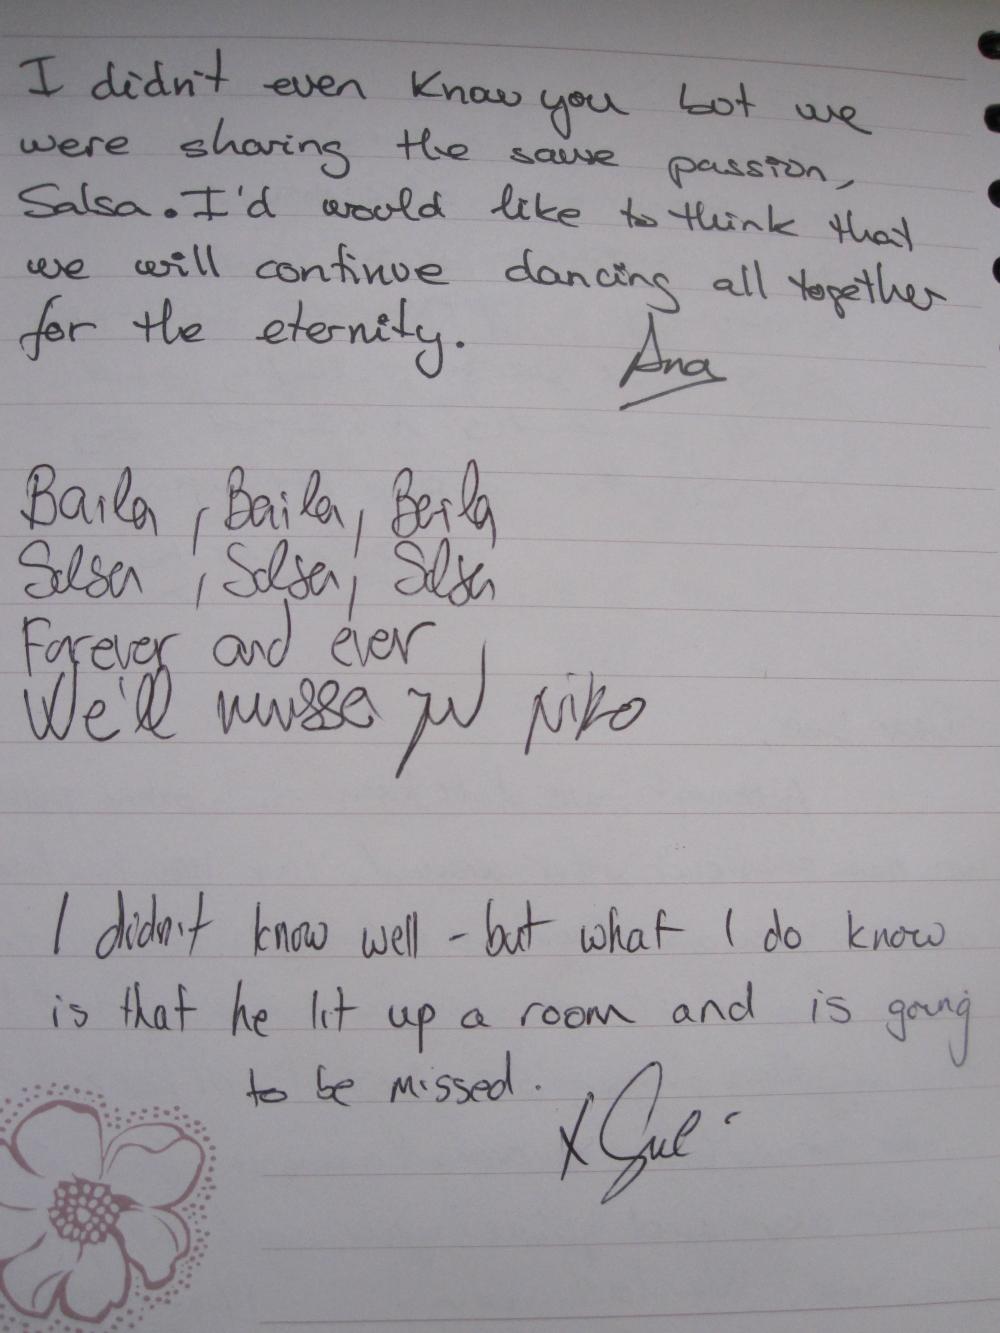 I didn't even know you but we
were sharing the same passion,
Salsa. I'd would like to think that
we will continue dancing all together
for the eternity.
Ana
Baila, Baila, Baila
Salsa, Salsa, Salsa
Forever and ever
We'll you Niko
I didn't know well - but what I do know
is that he lit up a room and is going
to be missed.
X Sue